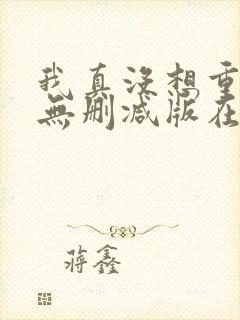 我真没想重
無删减版在
蒋鑫